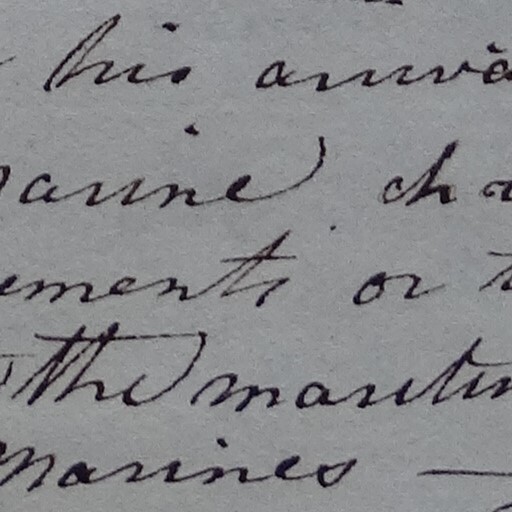 his arriva
marine cha
ements or t
the maritim
marines —